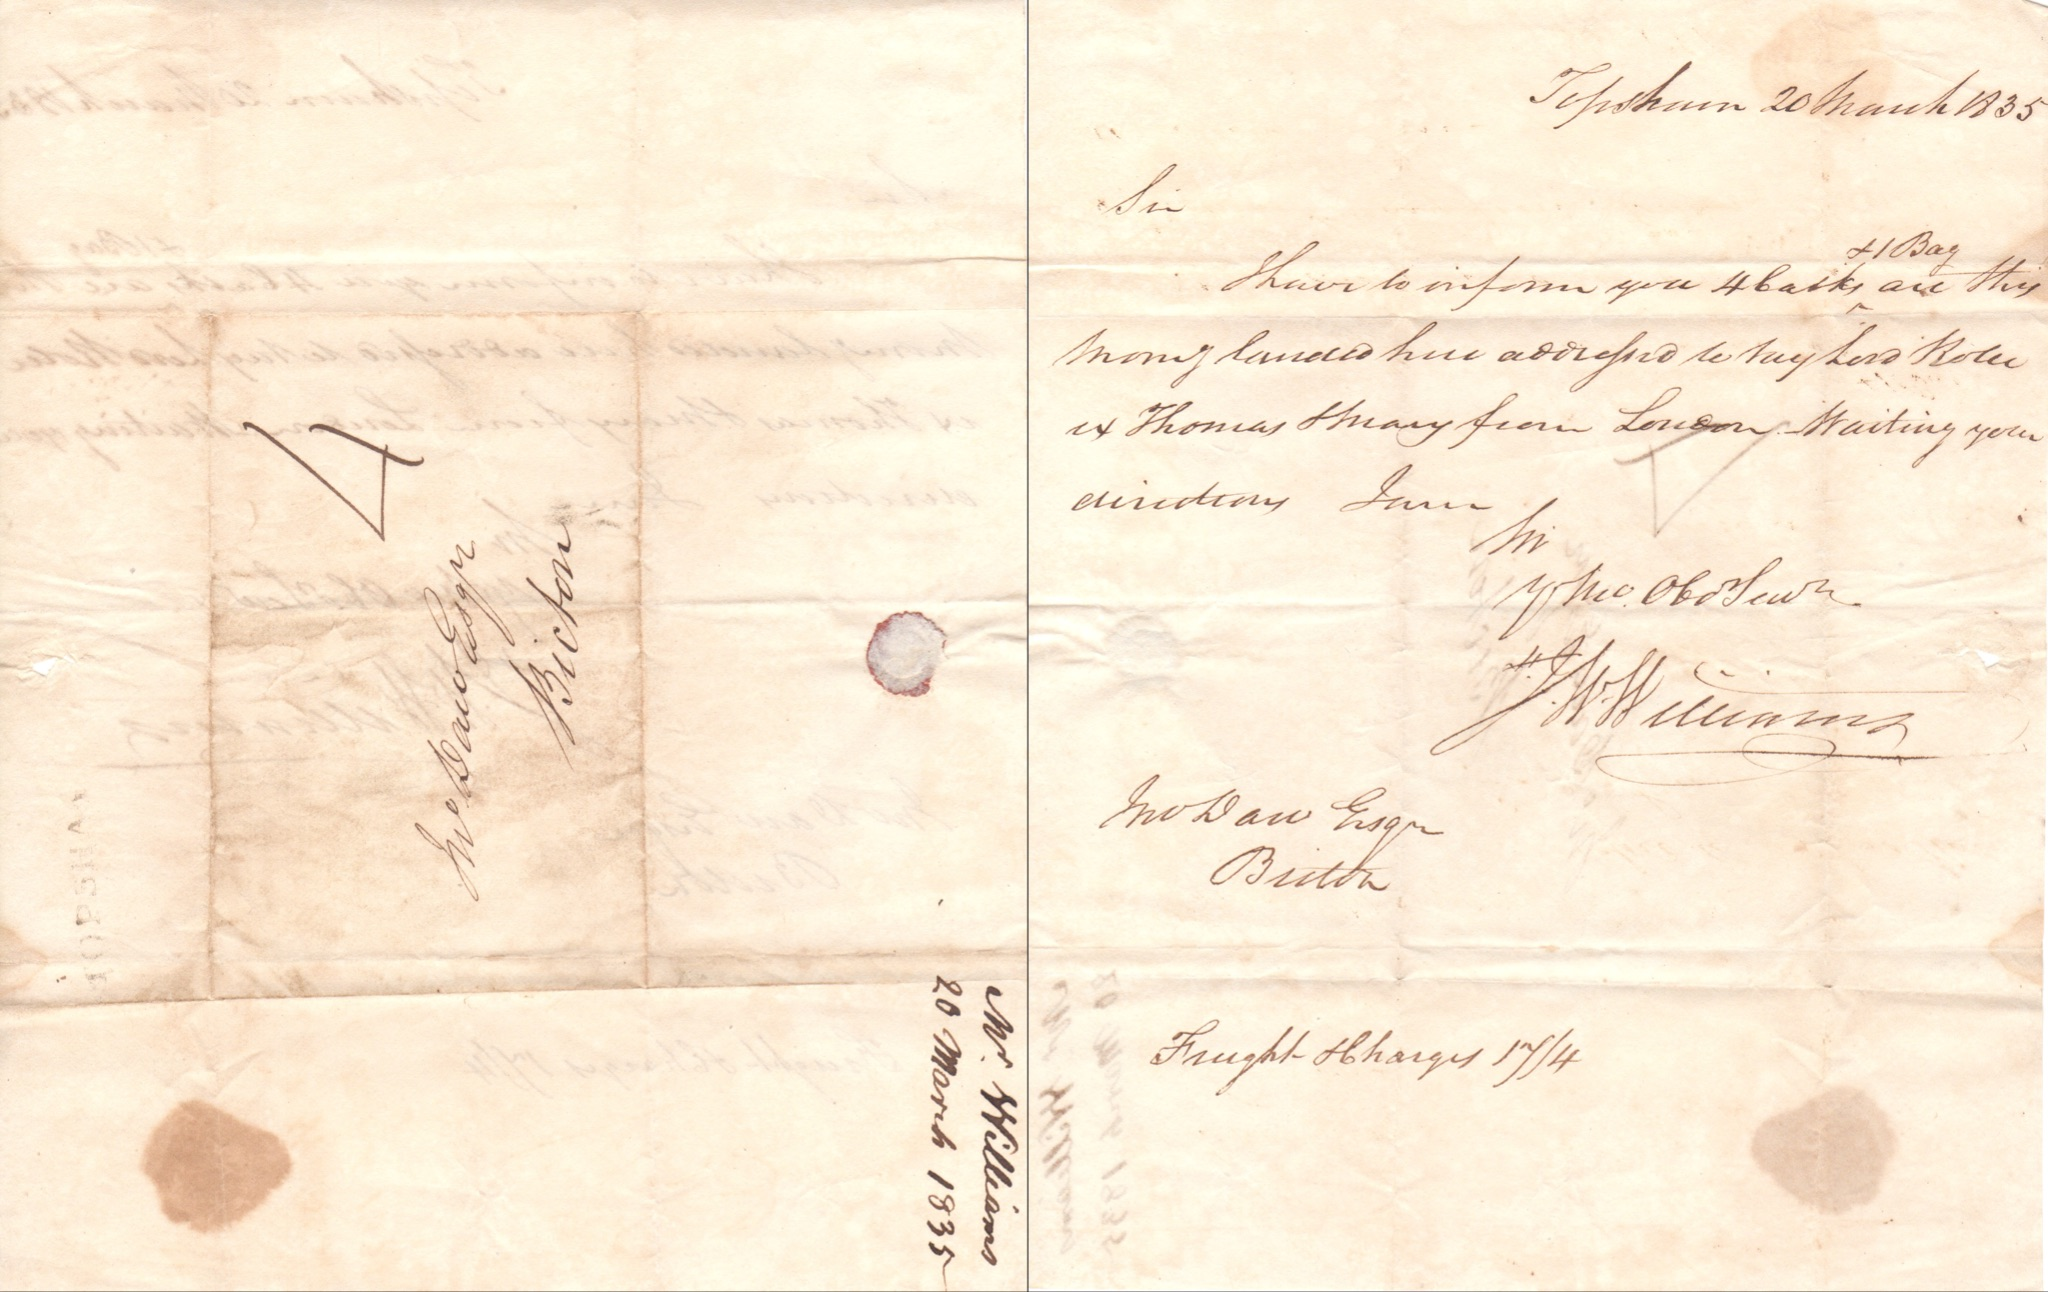 4
Jno Daw Esqr
Bicton
TOPSHAM
Mr. Williams
20 March 1835
Topsham 20 March 1835
Sir
& 1 Bag
I have to inform you 4 Casks ^ are this
Morng landed here addressed to Lord Rolle
ex Thomas & Mary from London. Waiting your
directions I am
Sir
Yr Mo. Obd Servt
J W Williams
Jno Daw Esqr
Bicton
Freight & Charges 17/4